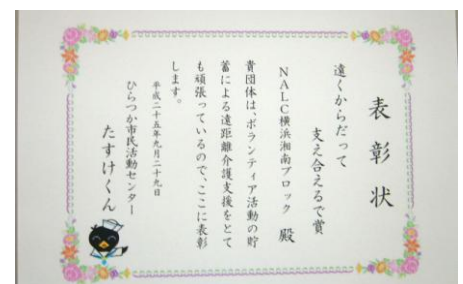 表彰状
遠くからだって
支え合えるで賞
NALC横浜湘南ブロック 殿
貴団体は、ボランティア活動の貯
蓄による遠距離介護支援をとて
も頑張っているので、ここに表彰
します。
平成二十五年九月二十九日
ひらつか市民活動センター
たすけくん